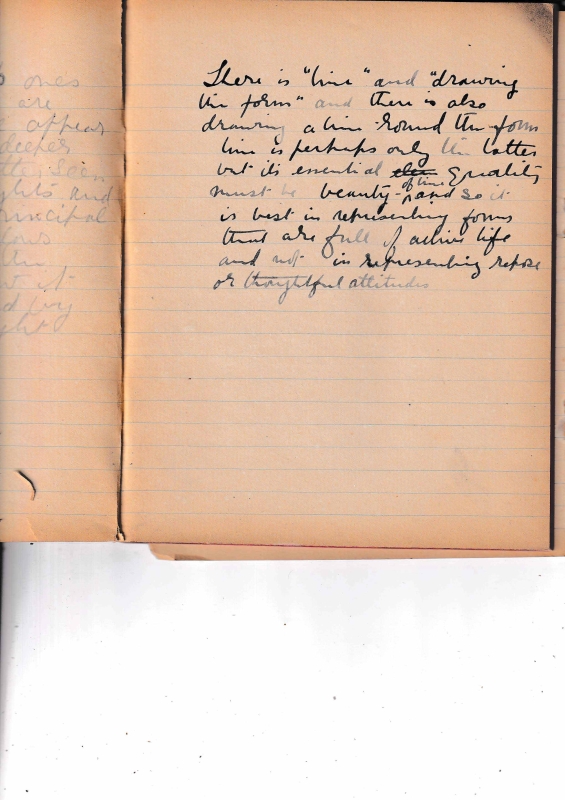 ones
are
appear
deeper
seen
and
principal
There is "line" and "drawing
the form" and there is also
drawing a line round the form
line is perhaps only the latter
but its essential quality
must be beauty of line and so it
is best in representing forms
that are full of active life
and not in representing repose
or thoughtful attitudes